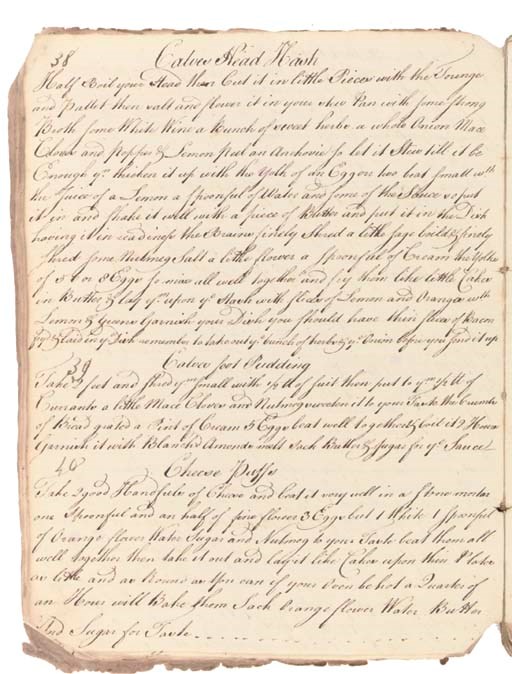 38 Calves Head Hash
Half Boil your Head then Cut it in little Pieces with the Tounge
and Pallet then salt and flower it in your stew Pan with some strong
Broth some White Wine a Bunch of sweet herbs a whole Onion Mace
Cloves and Pepper & Lemon Peal an Anchovie so let it Stew till it be
Enough yn thicken it up with the Yolk of an Egg or two beat small wth
the Juice of a Lemon a spoonful of Water and some of the Sauce so put
it in and shake it well with a piece of Butter and put it in the Dish
having it in readiness the Brains finely Shred a little sage boild & finely
Shred some Nutmeg Salt a little flower a spoonful of Cream the Yolks
of 5 or 8 Eggs so mix all well together and fry them like little Cakes
in Butter & lay ym upon ye Hash with slices of Lemon and Oranges wth
Lemon & Greens Garnish your Dish you should have thin slices of Bacon
fry'd & laid in ye Dish remember to take out ye bunch of herbs & ye Onion before you send it up
39 Calves foot Pudding
Take 2 feet and shred ym small with ½ ℔ of suit then put to ym ½ ℔ of
Currants a little Mace Cloves and Nutmeg sweeten it to your Taste the Crumbs
of Bread grated a Pint of Cream 5 Eggs beat well together & boil it 2 Hours
Garnish it with Blanch'd Amonds melt Sack Butter & Sugar for ye Sauce
40 Cheese Puffs
Take 2 good Handfuls of Cheese and beat it very well in a stone morter
one Spoonful and an half of fine flower 3 Eggs but 1 White 1 spoonful
of Orange flower Water Sugar and Nutmeg to your Taste beat them all
well together then take it out and lay it like Cakes upon thin Plates
as little and as Round as You can if your Oven be hot a Quarter of
an Hour will Bake them Sack Orange flower Water Butter
And Sugar for Taste